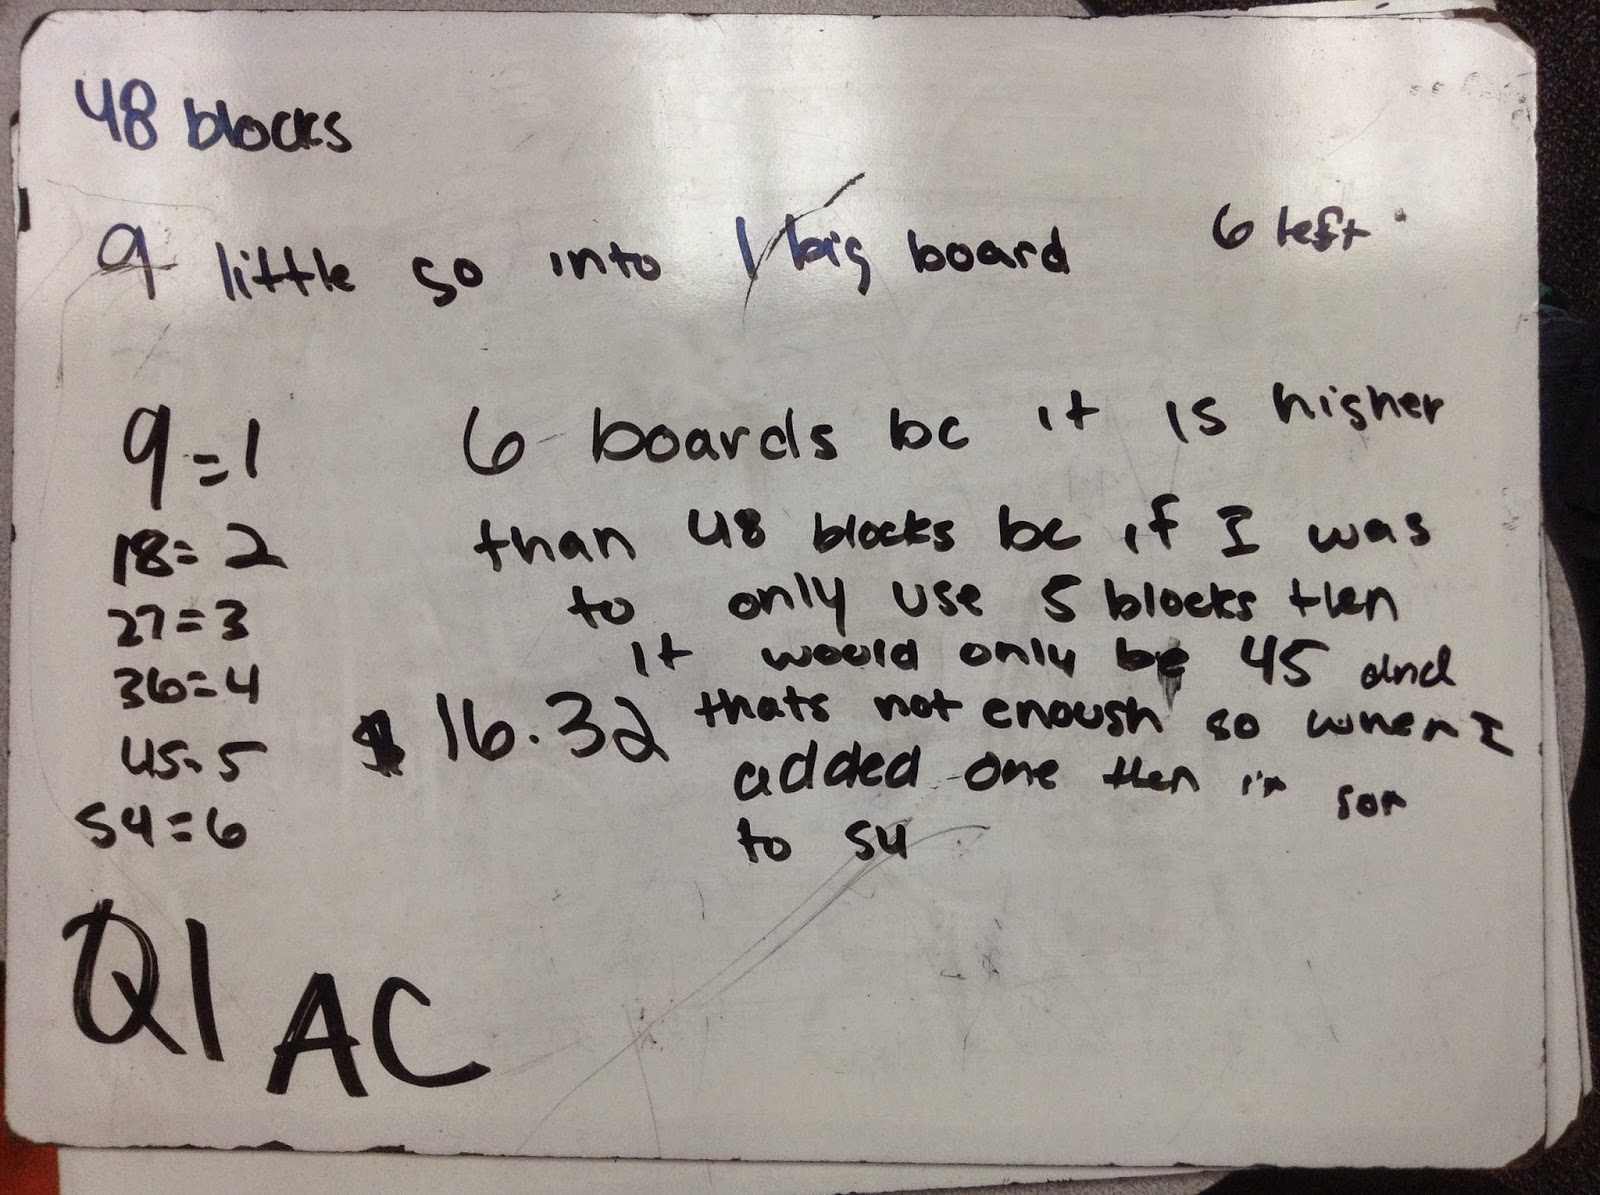 48 blocks
9 little go into 1 big board 6 left
9=1
18=2
27=3
36=4
45=5
54=6
6 boards bc it is higher
than 48 blocks bc if I was
to only use 5 blocks then
it would only be 45 and
thats not enough so when I
added one then it
to 54
$16.32
Q1 AC